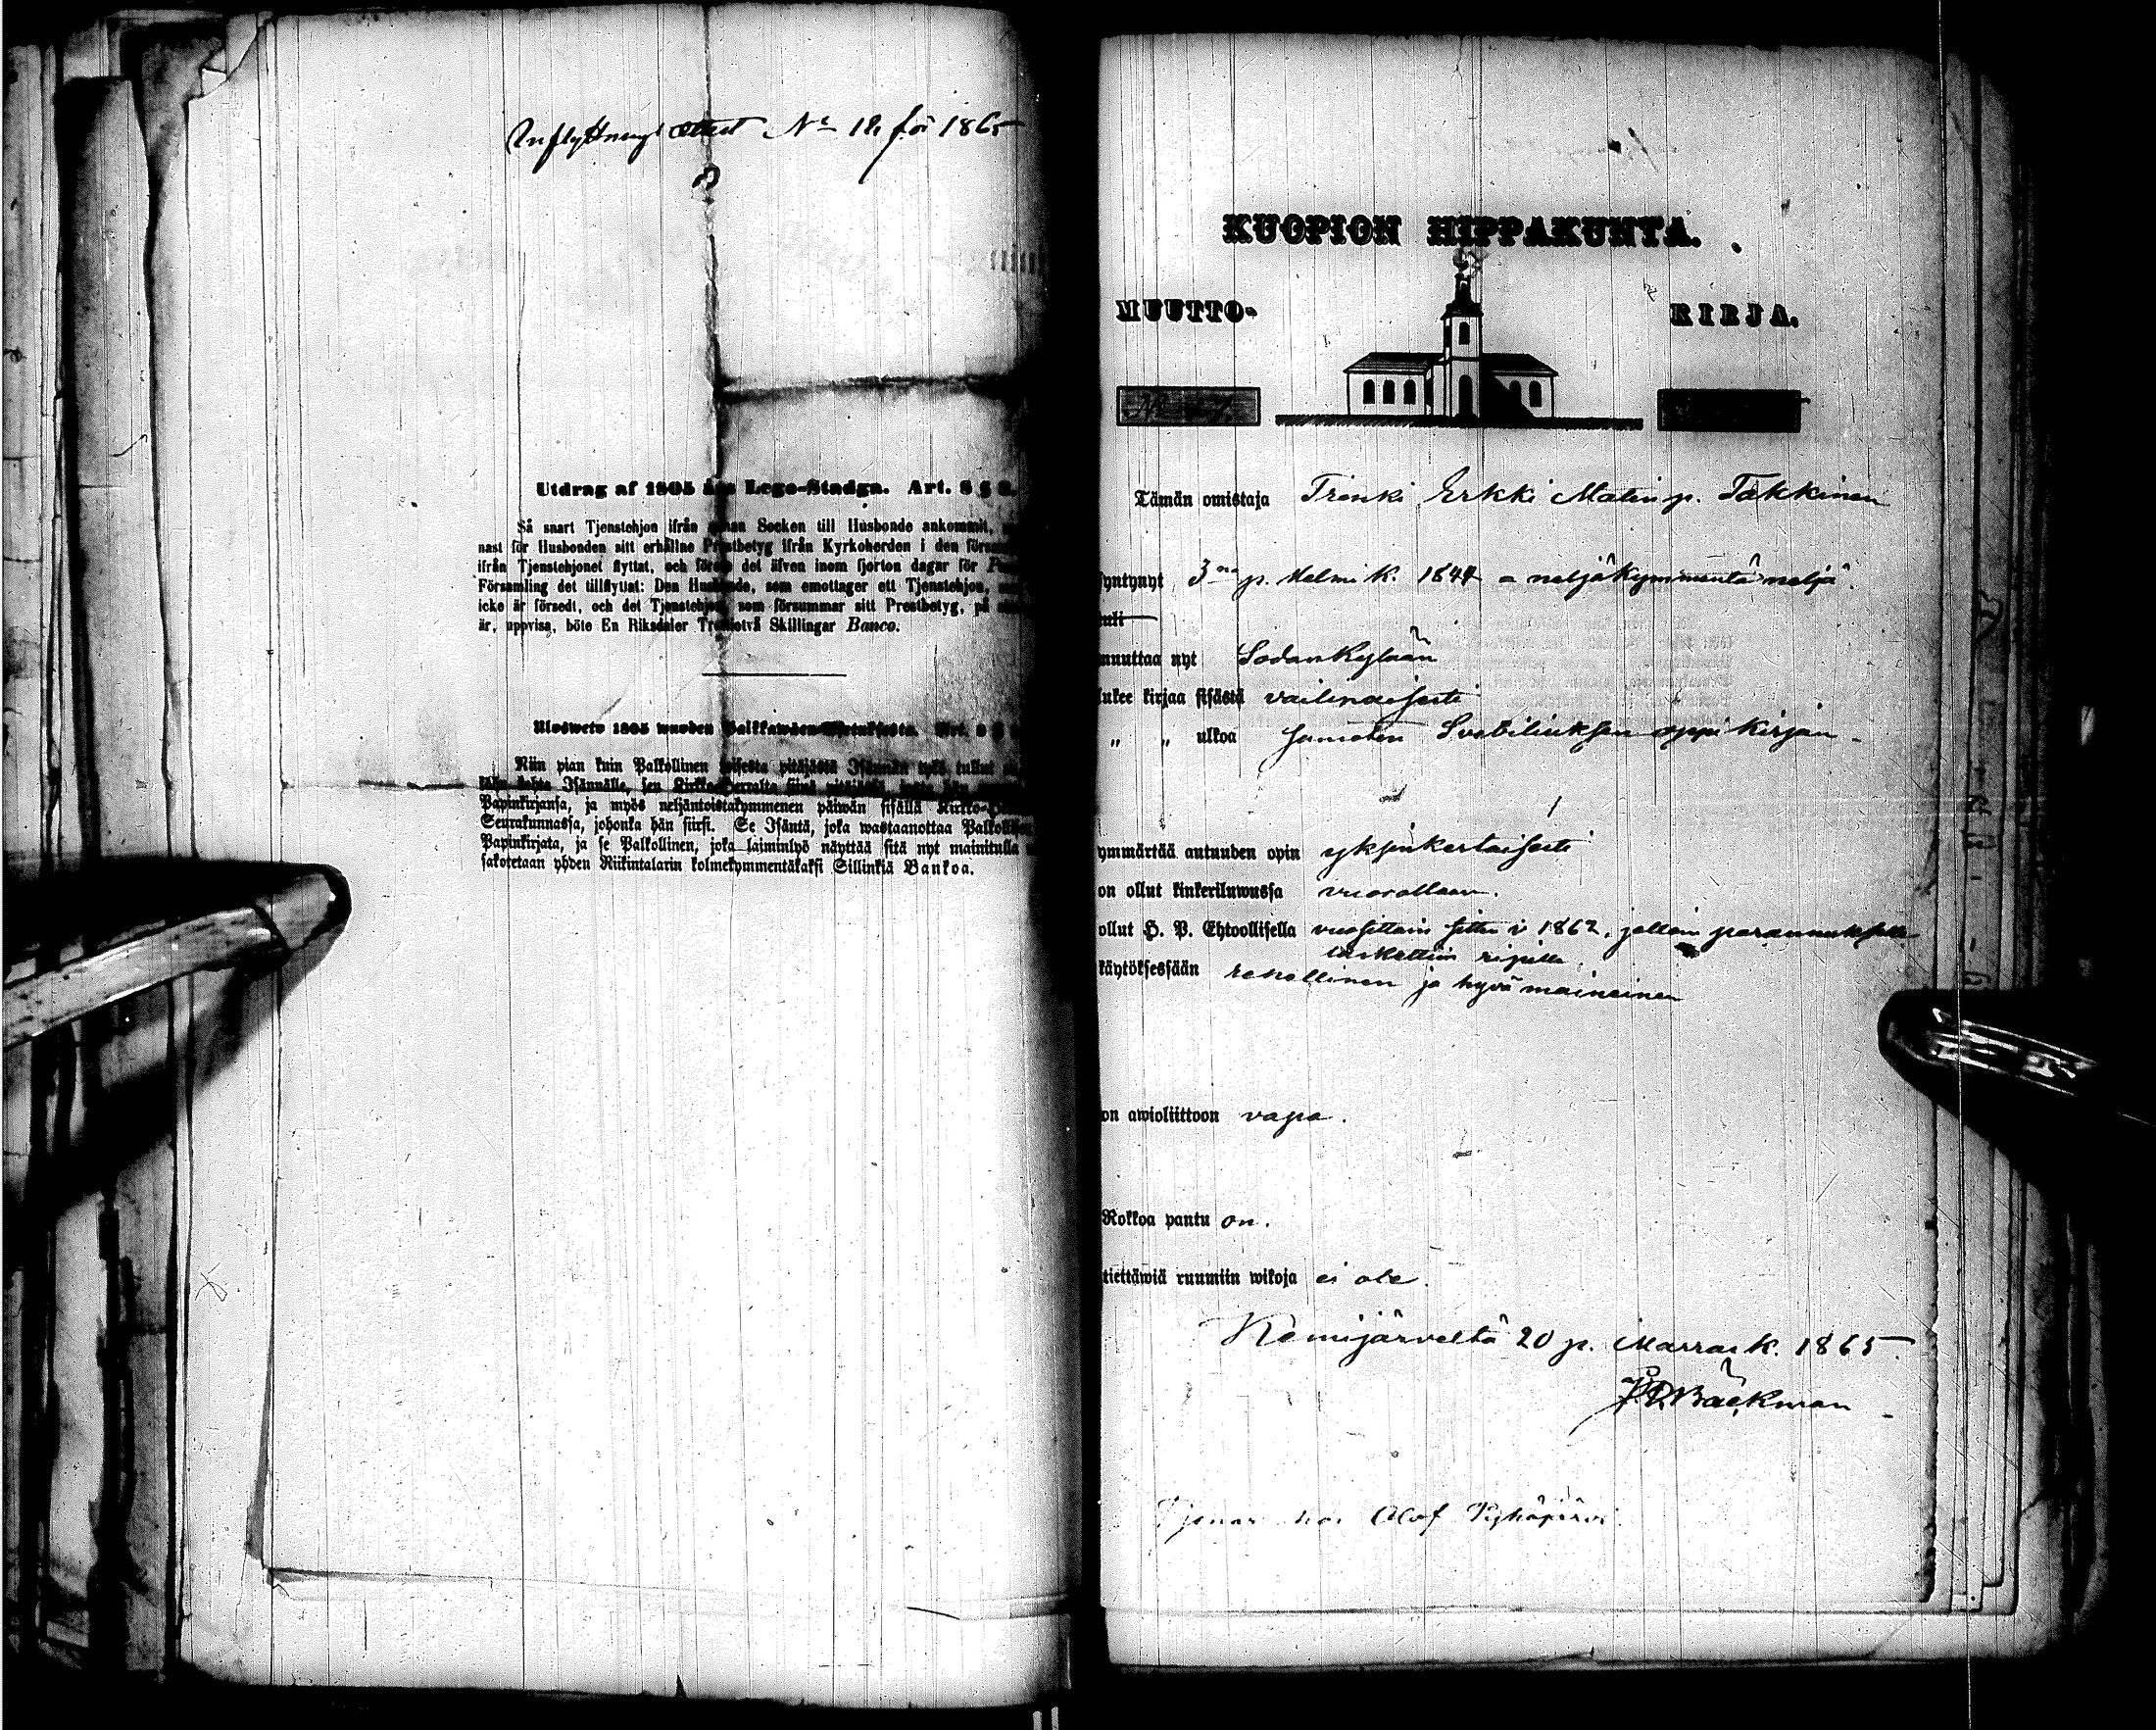 Inflyttnings attest No 18, för 1865
Utdrag af 1805 års Lego-Stadga. Art. 8 § 2.
Så snart Tjenstehjon ifrån annan Socken till Husbonde ankommit,
nast för Husbonden sitt erhållne Prestbetyg ifrån Kyrkoherden i den
ifrån Tjenstehjonet flyttat, och det äfven inom fjorton dagar för
Församling det tillflyttat: Den Husbonde, som emottager ett Tjenstehjon,
icke är försedt, och det Tjenstehjon, som försummar sitt Prestbetyg, på
är, uppvisa, böte En Riksdaler Trettiotvå Skillingar Banco.
Ulosweto 1805 wuoden Palkkawäen-Asetuksesta. Art. 8 §
Niin pian kuin Palkollinen toisesta pitäjästä Isännän tykö tullut
Isännälle, sen Kirkko-Herralta siinä
Papinkirjansa, ja myös neljäntoistakymmenen päiwän sisällä
Seurakunnassa, johonka hän siirsi. Se Isäntä, joka wastaanottaa
Papinkirjata, ja se Palkollinen, joka laiminlyö näyttää sitä nyt mainitulla
sakotetaan yhden Riikintalarin kolmekymmentäkaksi Sillinkiä Bankoa.
KUOPION HIPPAKUNTA.
MUUTTO- KIRJA.
No
Tämän omistaja Trenki Erkki Matinp. Takkinen
syntynyt 3 p. Helmik. 1844 = neljäkymmentä neljä.
tuli
muuttaa nyt Sodankylään
lukee kirjaa sisästä vailinaisesti
„ „ ulkoa samoten Svebiliuksen oppi kirjan
ymmärtää autuuden opin yksinkertaisesti
on ollut kinkeriluwussa vuorollaan.
ollut H. P. Ehtoollisella vuosittain sitte v 1862, jolloin parannuksella
laskettiin ripille.
käytöksessään rehellinen ja hyvä maineinen
on awioliittoon vapa.
Rokkoa pantu on.
tiettäwiä ruumiin wikoja ei ole.
Kemijärveltä 20 p. Marrask. 1865.
Bäckman
Tjenar hos Olof Pyhäjärvi